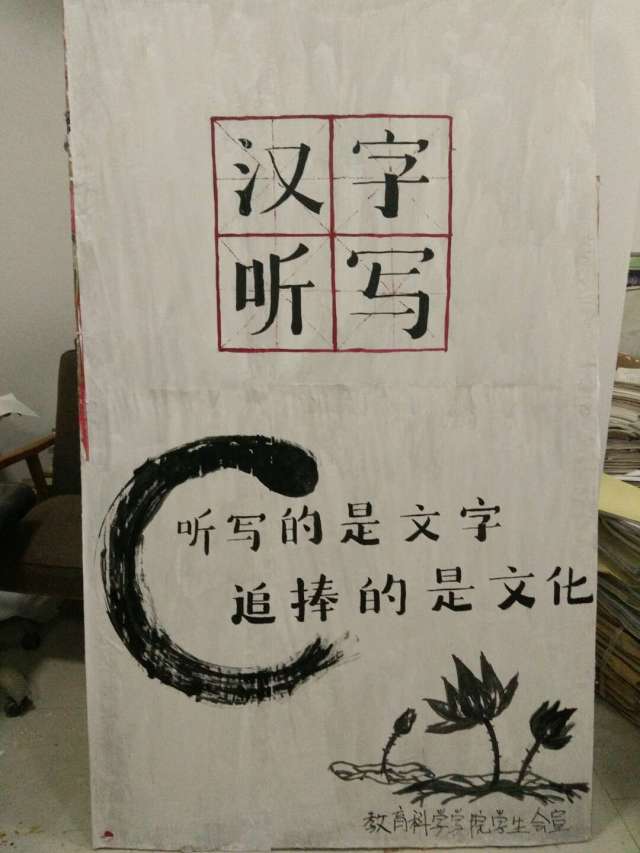 汉字
听写
听写的是文字
追捧的是文化
教育科学学院学生会宣